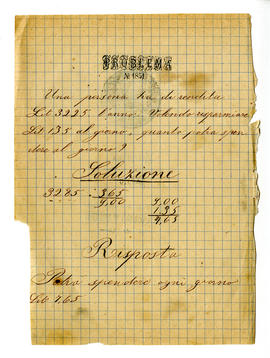 PROBLEMA
№ 1851
Una persona ha di rendita
Lit 3225 l'anno. Volendo risparmiare
Lit 1.35 al giorno, quanto potrà spen
dere al giorno?
Soluzione
3285 365
9,00 9,00
1.35
7,65
Risposta
Potrà spendere ogni giorno
Lit 7.65